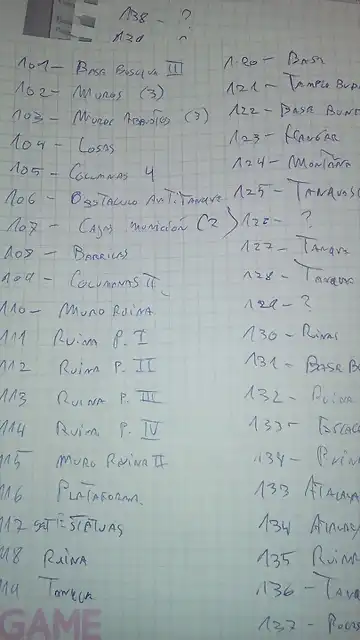 138 - ?
139 ?
101 - BASE BOSQUE II
102 - MUROS (3)
103 - MUROS ABATIDOS (3)
104 - LOSAS
105 - COLUMNAS 4
106 - OBSTACULO ANTITANQUE
107 - CAJAS MUNICIÓN (2)
108 - BARRICAS
109 - COLUMNAS II
110 - MURO RUINA
111 RUINA P. I
112 RUINA P. II
113 RUINA P. III
114 RUINA P. IV
115 MURO RUINA II
116 PLATAFORMA
117 ESTATUAS
118 RUINA
119 TANQUE
120 - BASE
121 - TEMPLO
122 - BASE BUNK
123 - HANGAR
124 - MONTAÑA
125 - TANQUES
126 - ?
127 - TANQUE
128 - TANQUE
129 - ?
130 - RUINAS
131 - BASE B
132 - RUINA
133 - ESCA
134 - RUIN
133 ATALAYA
134 ATALAY
135 RUINA
136 - TANQ
137 - ROCAS
GAME